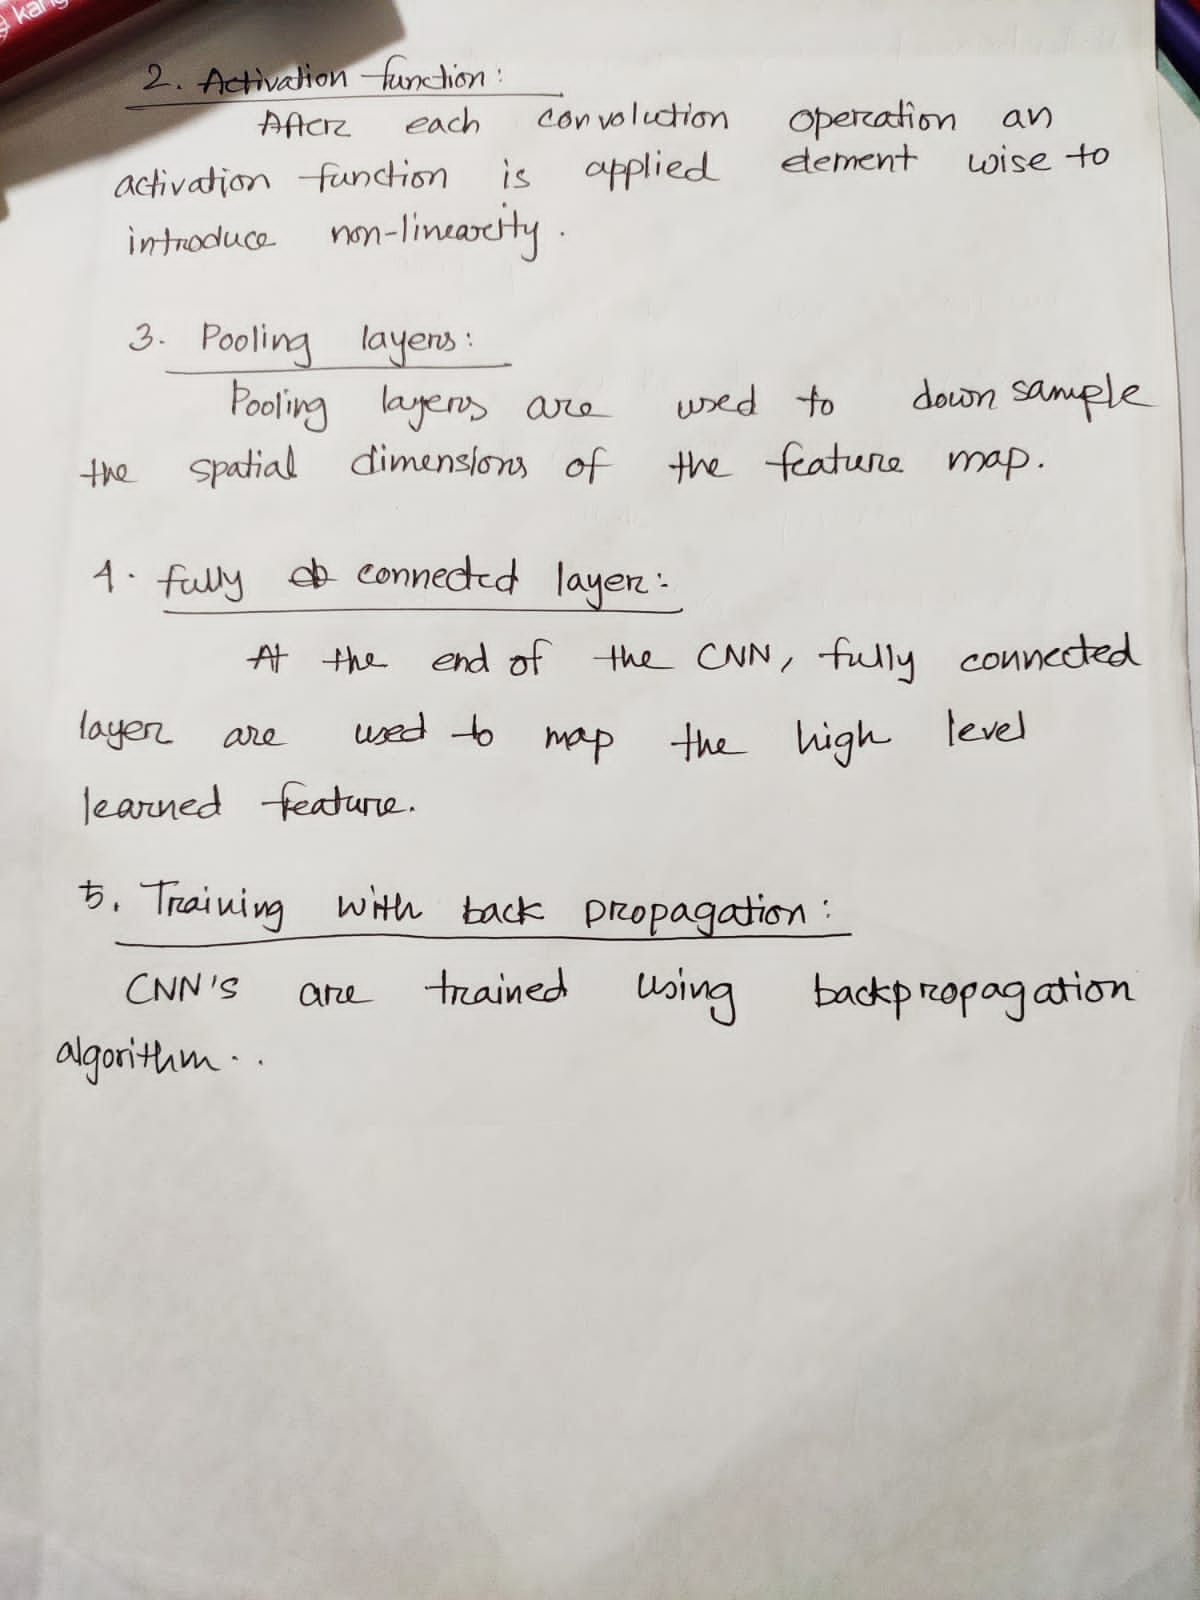 kang
2. Activation function:
After each convolution operation an
activation function is applied element wise to
introduce non-linearity.
3. Pooling layers:
Pooling layers are used to down sample
the spatial dimensions of the feature map.
4. fully connected layer:-
At the end of the CNN, fully connected
layer are used to map the high level
learned feature.
5. Training with back propagation:
CNN's are trained using backpropagation
algorithm..